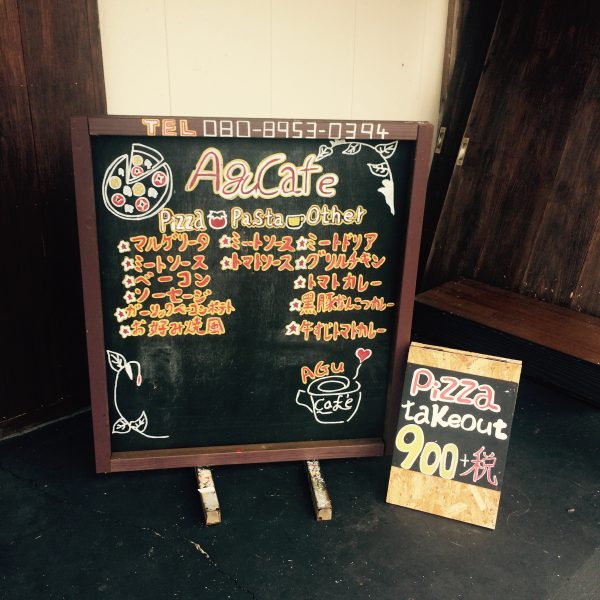 TEL 080-8953-0394
AguCafe
Pizza Pasta Other
マルゲリータ ミートソース ミートドリア
ミートソース トマトソース グリルチキン
ベーコン トマトカレー
ソーセージ 黒豚なんこつカレー
ガーリックベーコンポテト 牛すじトマトカレー
お好み焼風
AGU
cafe
Pizza
takeout
900+税